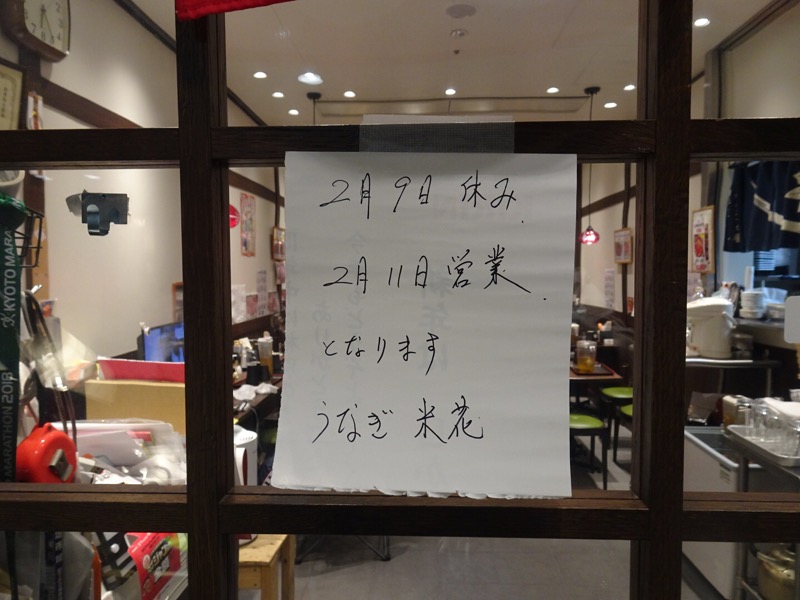 2月9日 休み
2月11日 営業
となります
うなぎ 米花
KYOTO MARA
MARATHON 2018